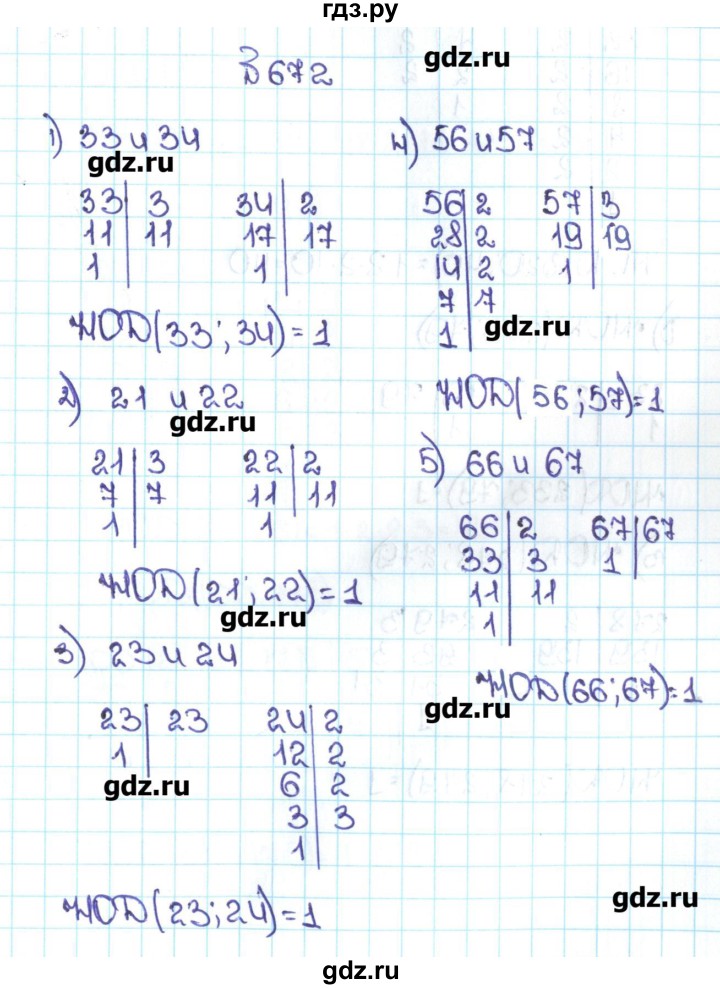 гдз.ру
gdz.ru
В 672
1) 33 и 34
gdz.ru
33 | 3
11 | 11
1 |
34 | 2
17 | 17
1 |
НОД(33; 34) = 1
2) 21 и 22
gdz.ru
21 | 3
7 | 7
1 |
22 | 2
11 | 11
1 |
НОД(21; 22) = 1
gdz.ru
3) 23 и 24
23 | 23
1 |
gdz.ru
24 | 2
12 | 2
6 | 2
3 | 3
1 |
НОД(23; 24) = 1
4) 56 и 57
56 | 2
28 | 2
14 | 2
7 | 7
1 |
57 | 3
19 | 19
1 |
gdz.ru
НОД(56; 57) = 1
5) 66 и 67
66 | 2
33 | 3
11 | 11
1 |
67 | 67
1 |
НОД(66; 67) = 1
gdz.ru
gdz.ru
gdz.ru